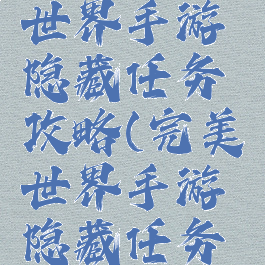 世界手游
隐藏任务
攻略(完美
世界手游
隐藏任务